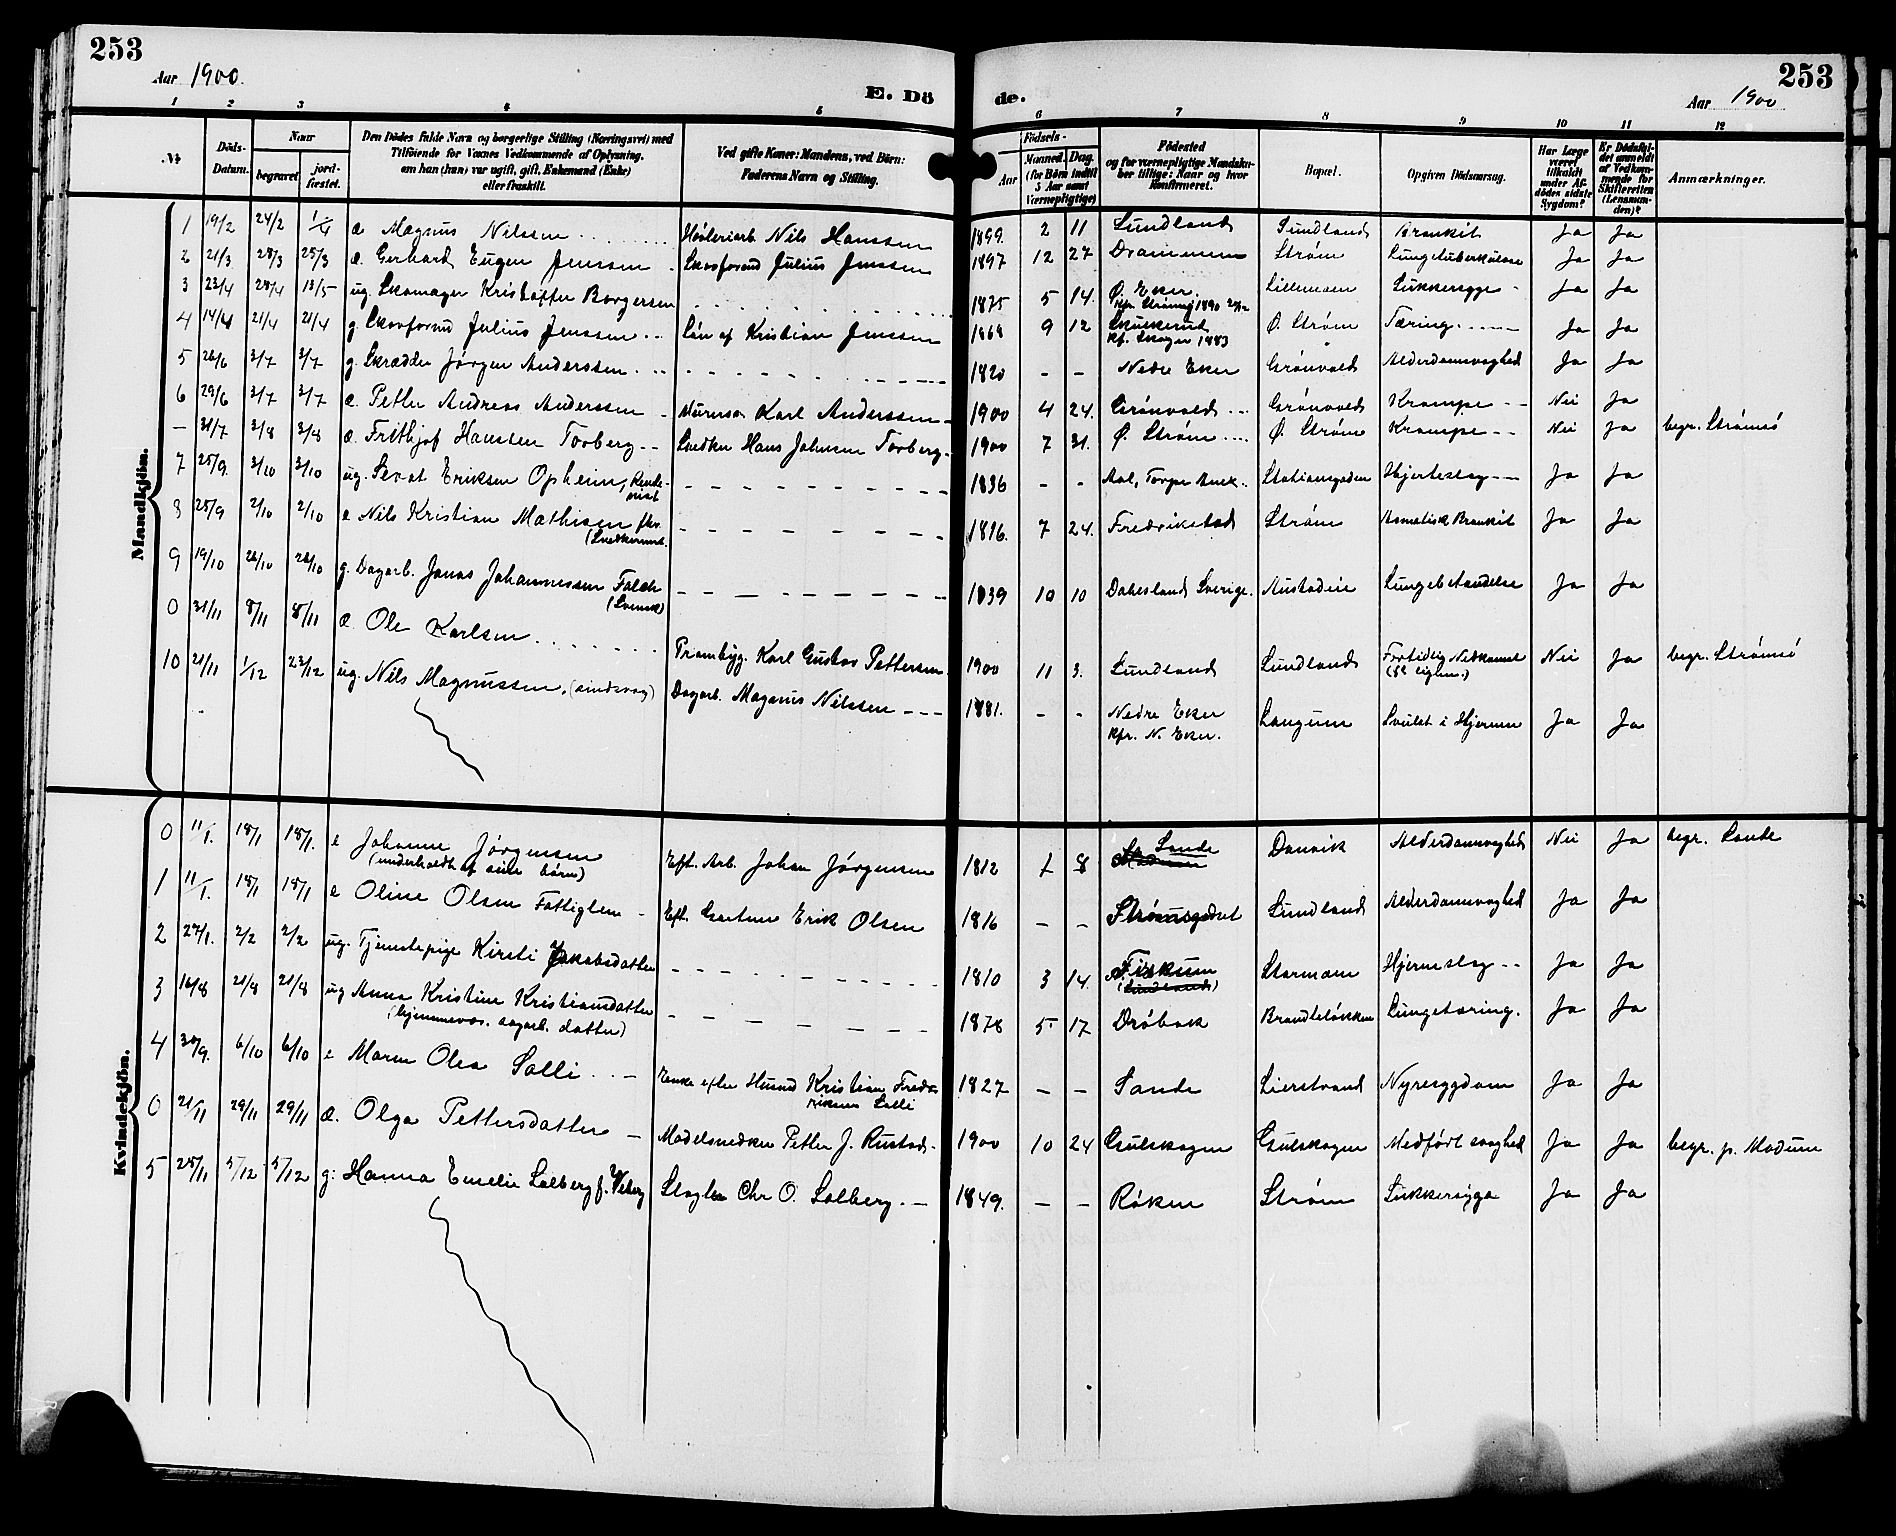 253
Aar 1900.
E. Dö
1 2 3 4 5
№
Döds-Datum.
Naar
begravet
jord-fæstet.
Den Dödes fulde Navn og borgerlige Stilling (Næringsvei) med
Tilföiende for Voxnes Vedkommende af Oplysning,
om han (hun) var ugift, gift, Enkemand (Enke)
eller fraskilt.
Ved gifte Koner: Mandens, ved Börn:
Faderens Navn og Stilling.
Mandkjön.
1 19/2 24/2 1/4 æ Magnus Nilssen Høvleriarb. Nils Hanssen
2 21/3 25/3 æ. Gerhard Eugen Jenssen Skovforvd Julius Jenssen
3 22/4 28/4 13/5 ug. Skomager Kristoffer Borgersen
4 14/4 21/4 21/4 g. Skovforvd Julius Jenssen Søn af Kristian Jenssen
5 26/6 3/7 3/7 g. Skrædder Jørgen Anderssen
6 29/6 3/7 3/7 æ. Petter Andreas Anderssen Murmes. Karl Anderssen
– 31/7 3/8 3/8 æ. Frithjof Hansten Torberg Snedker Hans Johnsen Torberg
7 25/9. 3/10 3/10 ug. Sevat Eriksen Opheim, Rende-
nist
8 25/9 2/10 2/10 e Nils Kristian Mathisen fhv.
(Snedkerm.
9 19/10 26/10 26/10 g. Dagarb. Jonas Johannessen Falch
(Svensk)
0 31/11 8/11 8/11 æ. Ole Karlsen Prambyg. Karl Gustav Pettersen
10 21/11 1/12 23/12 ug. Nils Magnussen. (sindsvag) Dagarb. Magnus Nilssen
Kvindekjön.
0 11/1. 18/1 18/1. e Johanne Jørgensen Eft. Arb. Johan Jørgensen
(underholdt af sine børn)
1 11/1 18/1 18/1 e Oline Olsen Fattiglem Eft. Gartner Erik Olsen
2 27/1. 2/2 2/2 ug. Tjenstepige Kirsti Jakobsdatter
3 16/8 21/8 21/8 ug Anna Kristine Kristiansdatter
(hjemmevær. dagarb. datter)
4 30/9. 6/10 6/10 e Maren Olea Solli Enke efter Husmd Kristian Fred-
riksen Solli
0 21/11 29/11 29/11 æ. Olga Pettersdatter Modelsnedker Petter J. Rustad
5 25/11 5/12 5/12 g. Hanna Emelie Solberg f. Viberg Slagter Chr O. Solberg
253
Aar 1900
de.
6 7 8 9 10 11 12
Födsels-
Aar
Maaned. Dag.
(for Börn indtil
5 Aar samt
Værnepligtige)
Födested
og for værnepligtige Mandskaber tillige: Naar og hvor
konfirmeret.
Bopæl.
Opgiven Dödsaarsag.
Har Læge
været
tilkaldt
under Afdödes sidste
Sygdom?
Er Dödsfaldet anmeldt
af Vedkommende for
Skifteretten
(Lensmanden)?
Anmærkninger.
1899. 2 11 Sundland Sundland Bronkit Ja Ja
1897 12 27 Drammen Strøm Lungetuberkulose Ja Ja
1875 5 14. Ø. Eker. Lillemoen Sukkersyge Ja Ja
1868 9 12 Skuskerud Ø. Strøm Tæring Ja Ja
Kf. Skoger 1883
1820 – – Nedre Eker Grønvold Alderdomsvaghed Ja Ja
1900 4 24. Grønvold Grønvold Krampe Nei Ja
1900 7 31. Ø. Strøm Ø. Strøm Krampe Nei Ja begr. Strømsö
1836 – – Aal, Torpe Anex. Stationsgaden Hjerteslag Ja Ja
1816. 7 24. Fredrikstad Strøm Asmatisk Bronkit Ja Ja
1839 10 10 Dalesland Sverige. Austadeie Lungebetændelse Ja Ja
1900 11 3. Sundland Sundland Fortidlig Nedkomst Nei Ja begr. Strømsö
1881. – – Nedre Eker Langum Svulst i Hjernen Ja Ja
Kfr. N. Eker.
1812 1 8 Sande Danvik Alderdomsvaghed Nei Ja begr. Sande
1816 – – Strømsgodset Sundland Alderdomsvaghed Ja Ja
1810 3 14. Fiskum Stormoen Hjerneslag Ja Ja
(Sundland)
1878 5 17 Drøbak Brandteløkken Lungetæring. Ja Ja
1827 – – Sande Lierstrand Nyresygdom Ja Ja
1900 10 24 Gulskogen Gulskogen Medført svaghed Ja Ja begr. p. Modum
1849. – – Røken Strøm Sukkersyge Ja Ja